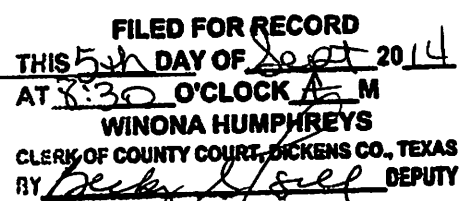 FILED FOR RECORD
THIS 5th DAY OF Sept 2014
AT 8:30 O'CLOCK A M
WINONA HUMPHREYS
CLERK OF COUNTY COURT, DICKENS CO., TEXAS
BY Becky DEPUTY